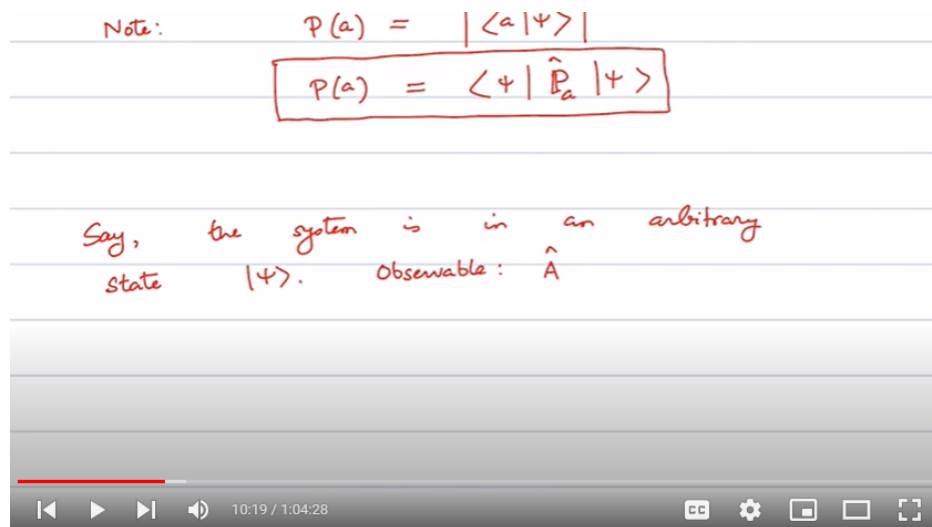 Note: P(a) = |<a|Ψ>|
P(a) = <Ψ| P̂ₐ |Ψ>
Say, the system is in an arbitrary
state |Ψ>. Observable: Â
10:19 / 1:04:28
CC